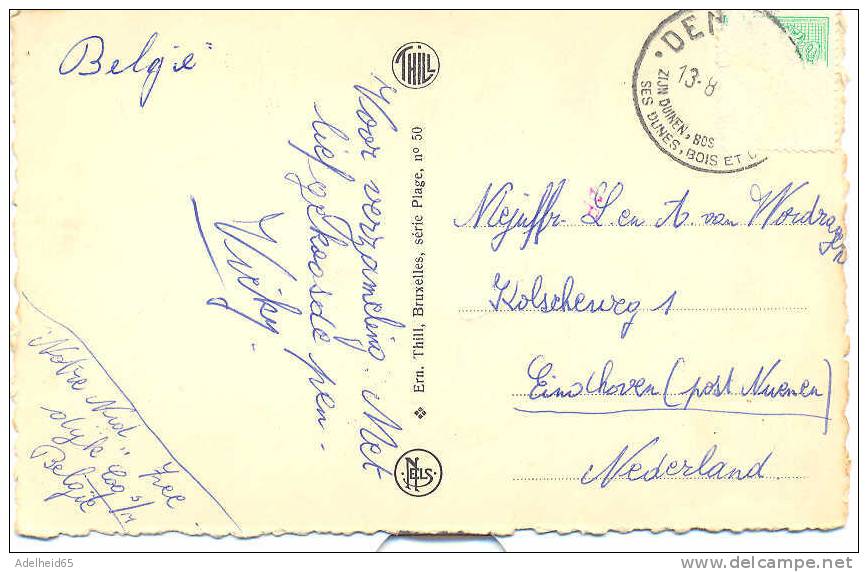 België
Voor verzameling. Met
lief gekoosde pen -
Vicky.
Notre Nid „ Zee
dijk Coq s/M
België
THILL
❖ Ern. Thill, Bruxelles, série Plage, nº 50
NELS
DEN
13-8
ZIJN DUINEN, BOS
SES DUNES, BOIS ET
Mejuffr. L. en A. van Wordragen
Kolscheweg 1
Eindhoven (post Nuenen)
Nederland
Adelheid65
www.delcampe.net